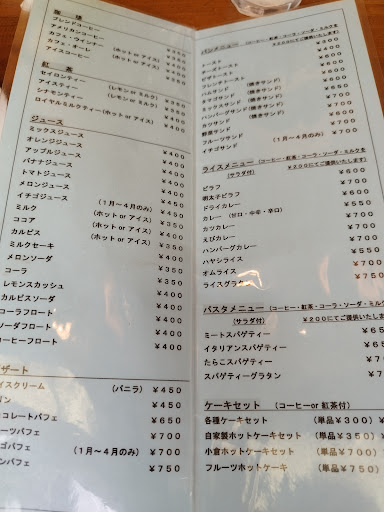 珈琲
ブレンドコーヒー ￥350
アメリカンコーヒー ￥350
カフェ・ウインナー ￥450
カフェ・オーレ (ホット or アイス) ￥400
アイスコーヒー ￥400
紅茶
セイロンティー (レモン or ミルク)
アイスティー (レモン or ミルク) ￥350
シナモンティー ￥400
ロイヤルミルクティー (ホット or アイス) ￥400
ジュース
ミックスジュース ￥400
オレンジジュース ￥400
アップルジュース ￥400
バナナジュース ￥400
トマトジュース ￥400
メロンジュース ￥400
イチゴジュース (1月～4月のみ) ￥450
ミルク (ホット or アイス) ￥350
ココア (ホット or アイス) ￥400
カルピス (ホット or アイス) ￥350
ミルクセーキ ￥400
メロンソーダ ￥350
コーラ ￥350
レモンスカッシュ ￥350
カルピスソーダ ￥400
コーラフロート ￥400
ソーダフロート ￥400
コーヒーフロート ￥400
ザート
イスクリーム (バニラ) ￥450
リン ￥450
ョコレートパフェ ￥650
ーツパフェ ￥700
ゴパフェ (1月～4月のみ) ￥700
ンパフェ ￥750
パンメニュー (コーヒー・紅茶・コーラ・ソーダ・ミルクを
￥200にてご提供いたします)
トースト ￥300
チーズトースト
ピザトースト ￥600
フレンチトースト
ハムサンド (焼きサンド)
タマゴサンド (焼きサンド)
ミックスサンド (焼きサンド)
ハンバーグサンド (焼きサンド) ￥700
カツサンド ￥700
野菜サンド
フルーツサンド ￥700
イチゴサンド (1月～4月のみ) ￥700
ライスメニュー (コーヒー・紅茶・コーラ・ソーダ・ミルクを
(サラダ付) ￥200にてご提供いたします)
ピラフ ￥600
明太子ピラフ ￥700
ドライカレー ￥550
カレー (甘口・中辛・辛口) ￥550
カツカレー ￥700
えびカレー ￥700
ハンバーグカレー ￥700
ハヤシライス ￥550
オムライス ￥700
ライスグラタン ￥750
パスタメニュー (コーヒー・紅茶・コーラ・ソーダ・ミル
(サラダ付) ￥200にてご提供いたします
ミートスパゲティー ￥65
イタリアンスパゲティー ￥65
たらこスパゲティー
スパゲティーグラタン
ケーキセット (コーヒーor 紅茶付)
各種ケーキセット (単品￥300) ￥
自家製ホットケーキセット (単品￥350) ￥
小倉ホットケーキセット (単品￥700) ￥
フルーツホットケーキ (単品￥750)